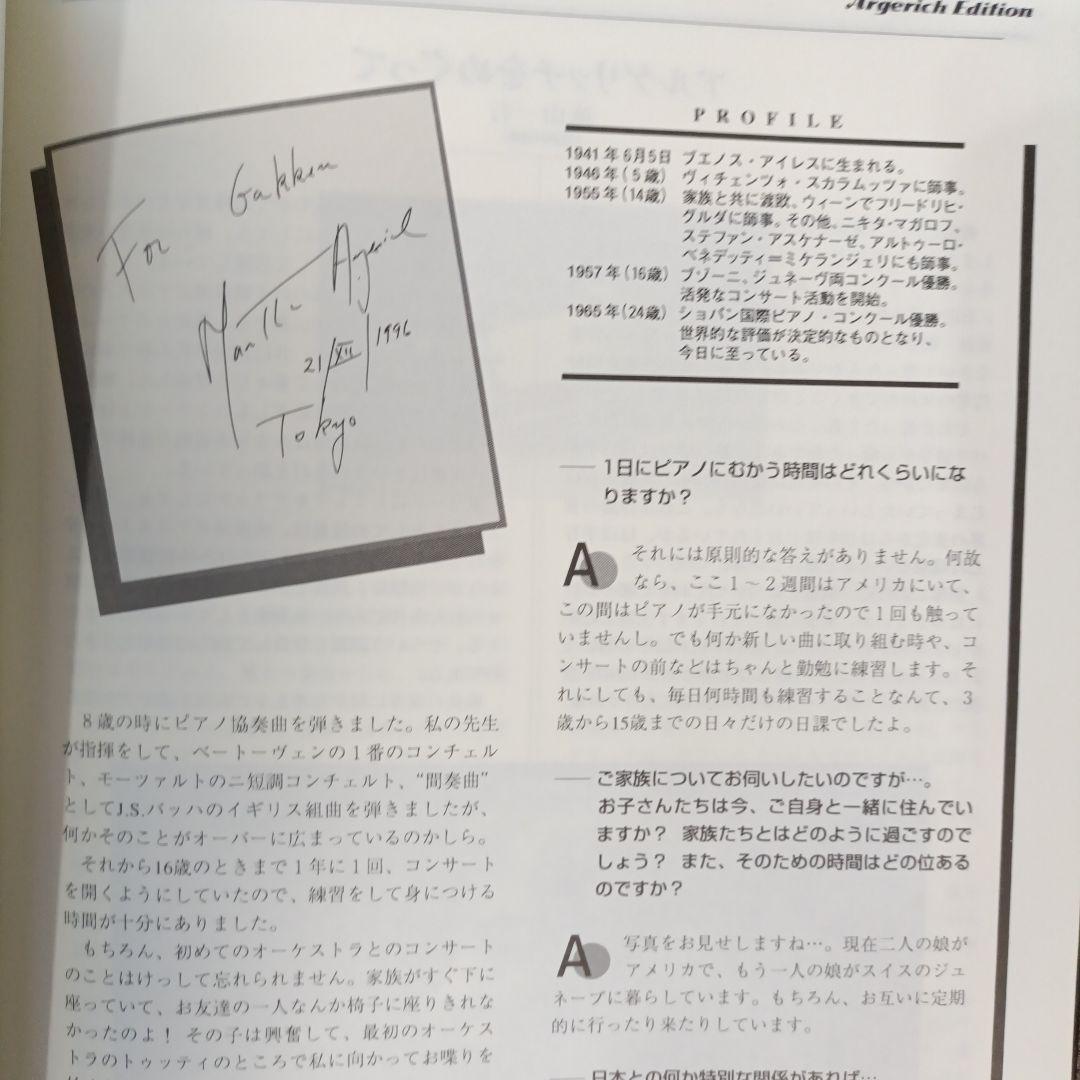 Argerich Edition
For
Gakken
Martha Argerich
21/XII/1996
Tokyo
PROFILE
1941年6月5日 ブエノス・アイレスに生まれる。
1946年(5歳) ヴィチェンツォ・スカラムッツァに師事。
1955年(14歳) 家族と共に渡欧。ウィーンでフリードリヒ・
グルダに師事。その他、ニキタ・マガロフ、
ステファン・アスケナーゼ、アルトゥーロ・
ベネデッティ＝ミケランジェリにも師事。
1957年(16歳) ブゾーニ、ジュネーヴ両コンクール優勝。
活発なコンサート活動を開始。
1965年(24歳) ショパン国際ピアノ・コンクール優勝。
世界的な評価が決定的なものとなり、
今日に至っている。
8歳の時にピアノ協奏曲を弾きました。私の先生
が指揮をして、ベートーヴェンの1番のコンチェル
ト、モーツァルトのニ短調コンチェルト、“間奏曲”
としてJ.S.バッハのイギリス組曲を弾きましたが、
何かそのことがオーバーに広まっているのかしら。
それから16歳のときまで1年に1回、コンサート
を開くようにしていたので、練習をして身につける
時間が十分にありました。
もちろん、初めてのオーケストラとのコンサート
のことはけっして忘れられません。家族がすぐ下に
座っていて、お友達の一人なんか椅子に座りきれな
かったのよ！ その子は興奮して、最初のオーケス
トラのトゥッティのところで私に向かってお喋りを
── 1日にピアノにむかう時間はどれくらいにな
りますか？
A それには原則的な答えがありません。何故
なら、ここ1～2週間はアメリカにいて、
この間はピアノが手元になかったので1回も触って
いませんし。でも何か新しい曲に取り組む時や、コ
ンサートの前などはちゃんと勤勉に練習します。そ
れにしても、毎日何時間も練習することなんて、3
歳から15歳までの日々だけの日課でしたよ。
── ご家族についてお伺いしたいのですが…。
お子さんたちは今、ご自身と一緒に住んでい
ますか？ 家族たちとはどのように過ごすので
しょう？ また、そのための時間はどの位ある
のですか？
A 写真をお見せしますね…。現在二人の娘が
アメリカで、もう一人の娘がスイスのジュ
ネーブに暮らしています。もちろん、お互いに定期
的に行ったり来たりしています。
── 日本との何か特別な関係があれば…